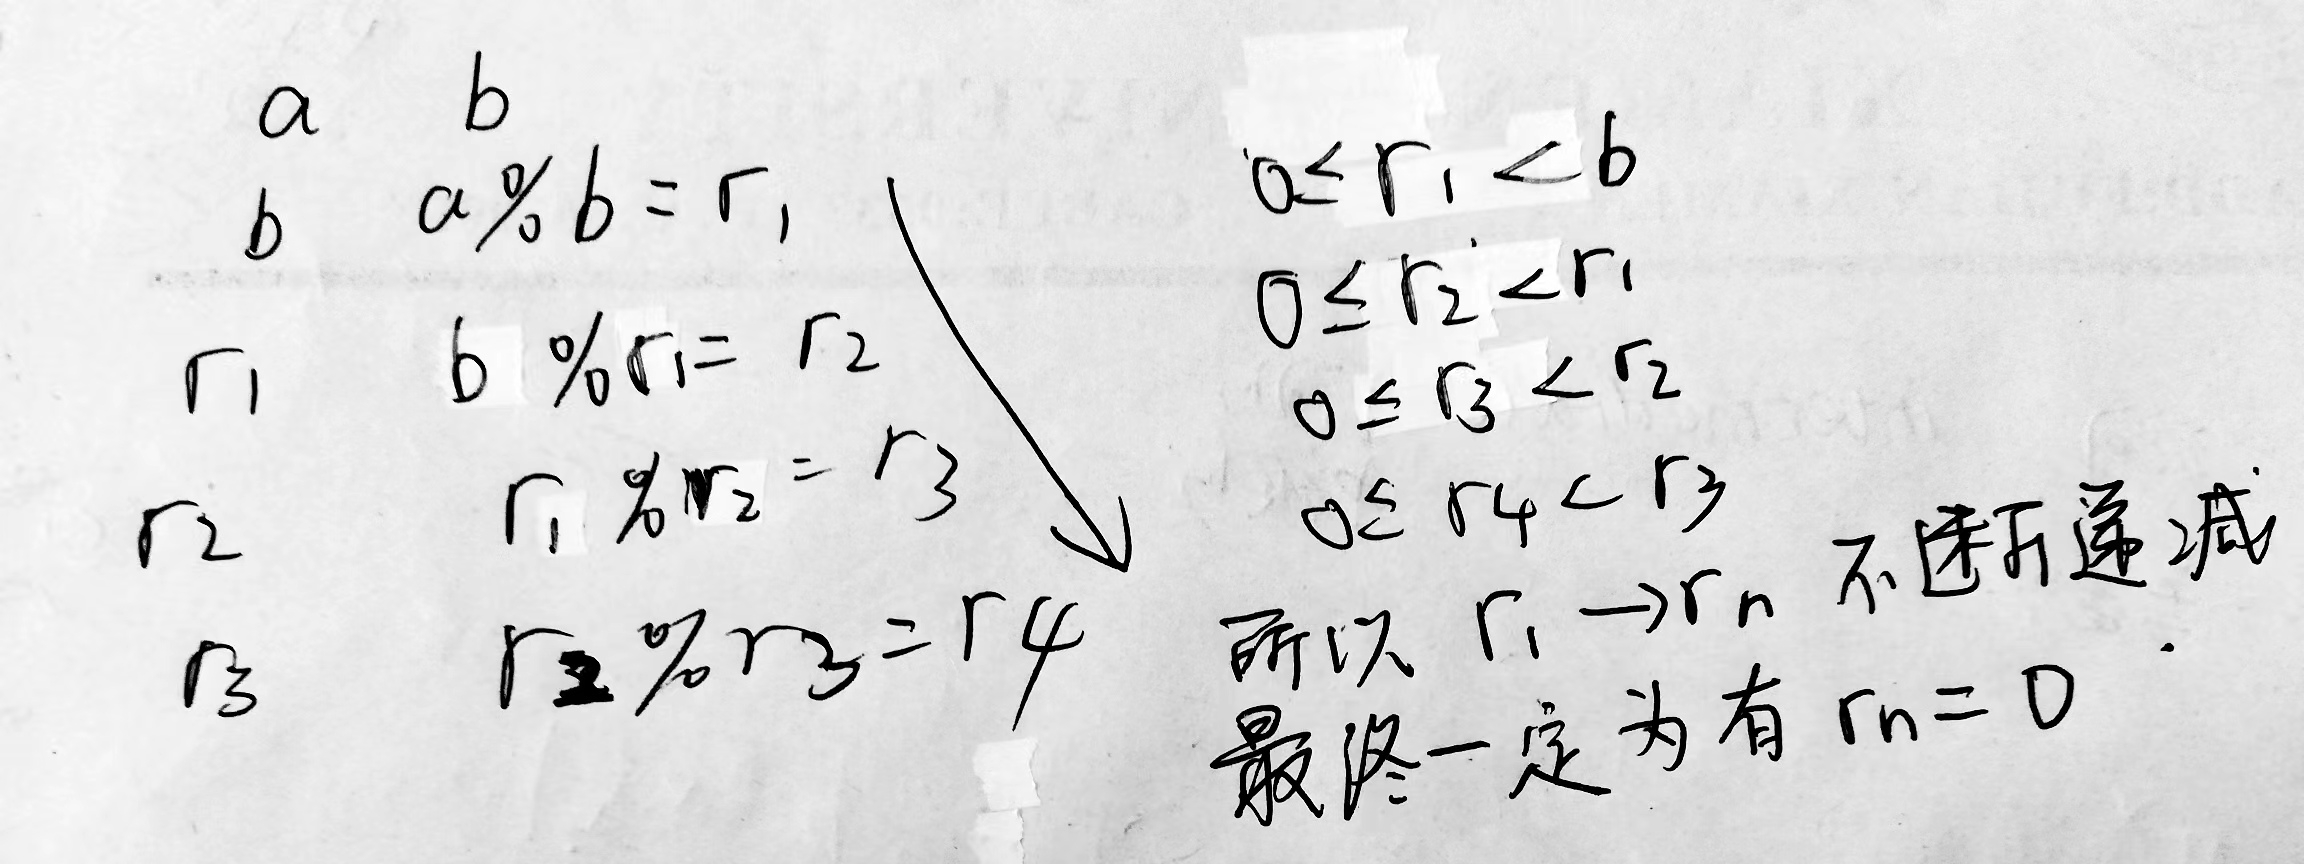 a b
b a%b=r1
r1 b%r1=r2
r2 r1%r2=r3
r3 r2%r3=r4
0≤r1<b
0≤r2<r1
0≤r3<r2
0≤r4<r3
所以 r1→rn 不断递减.
最终一定为有 rn=0